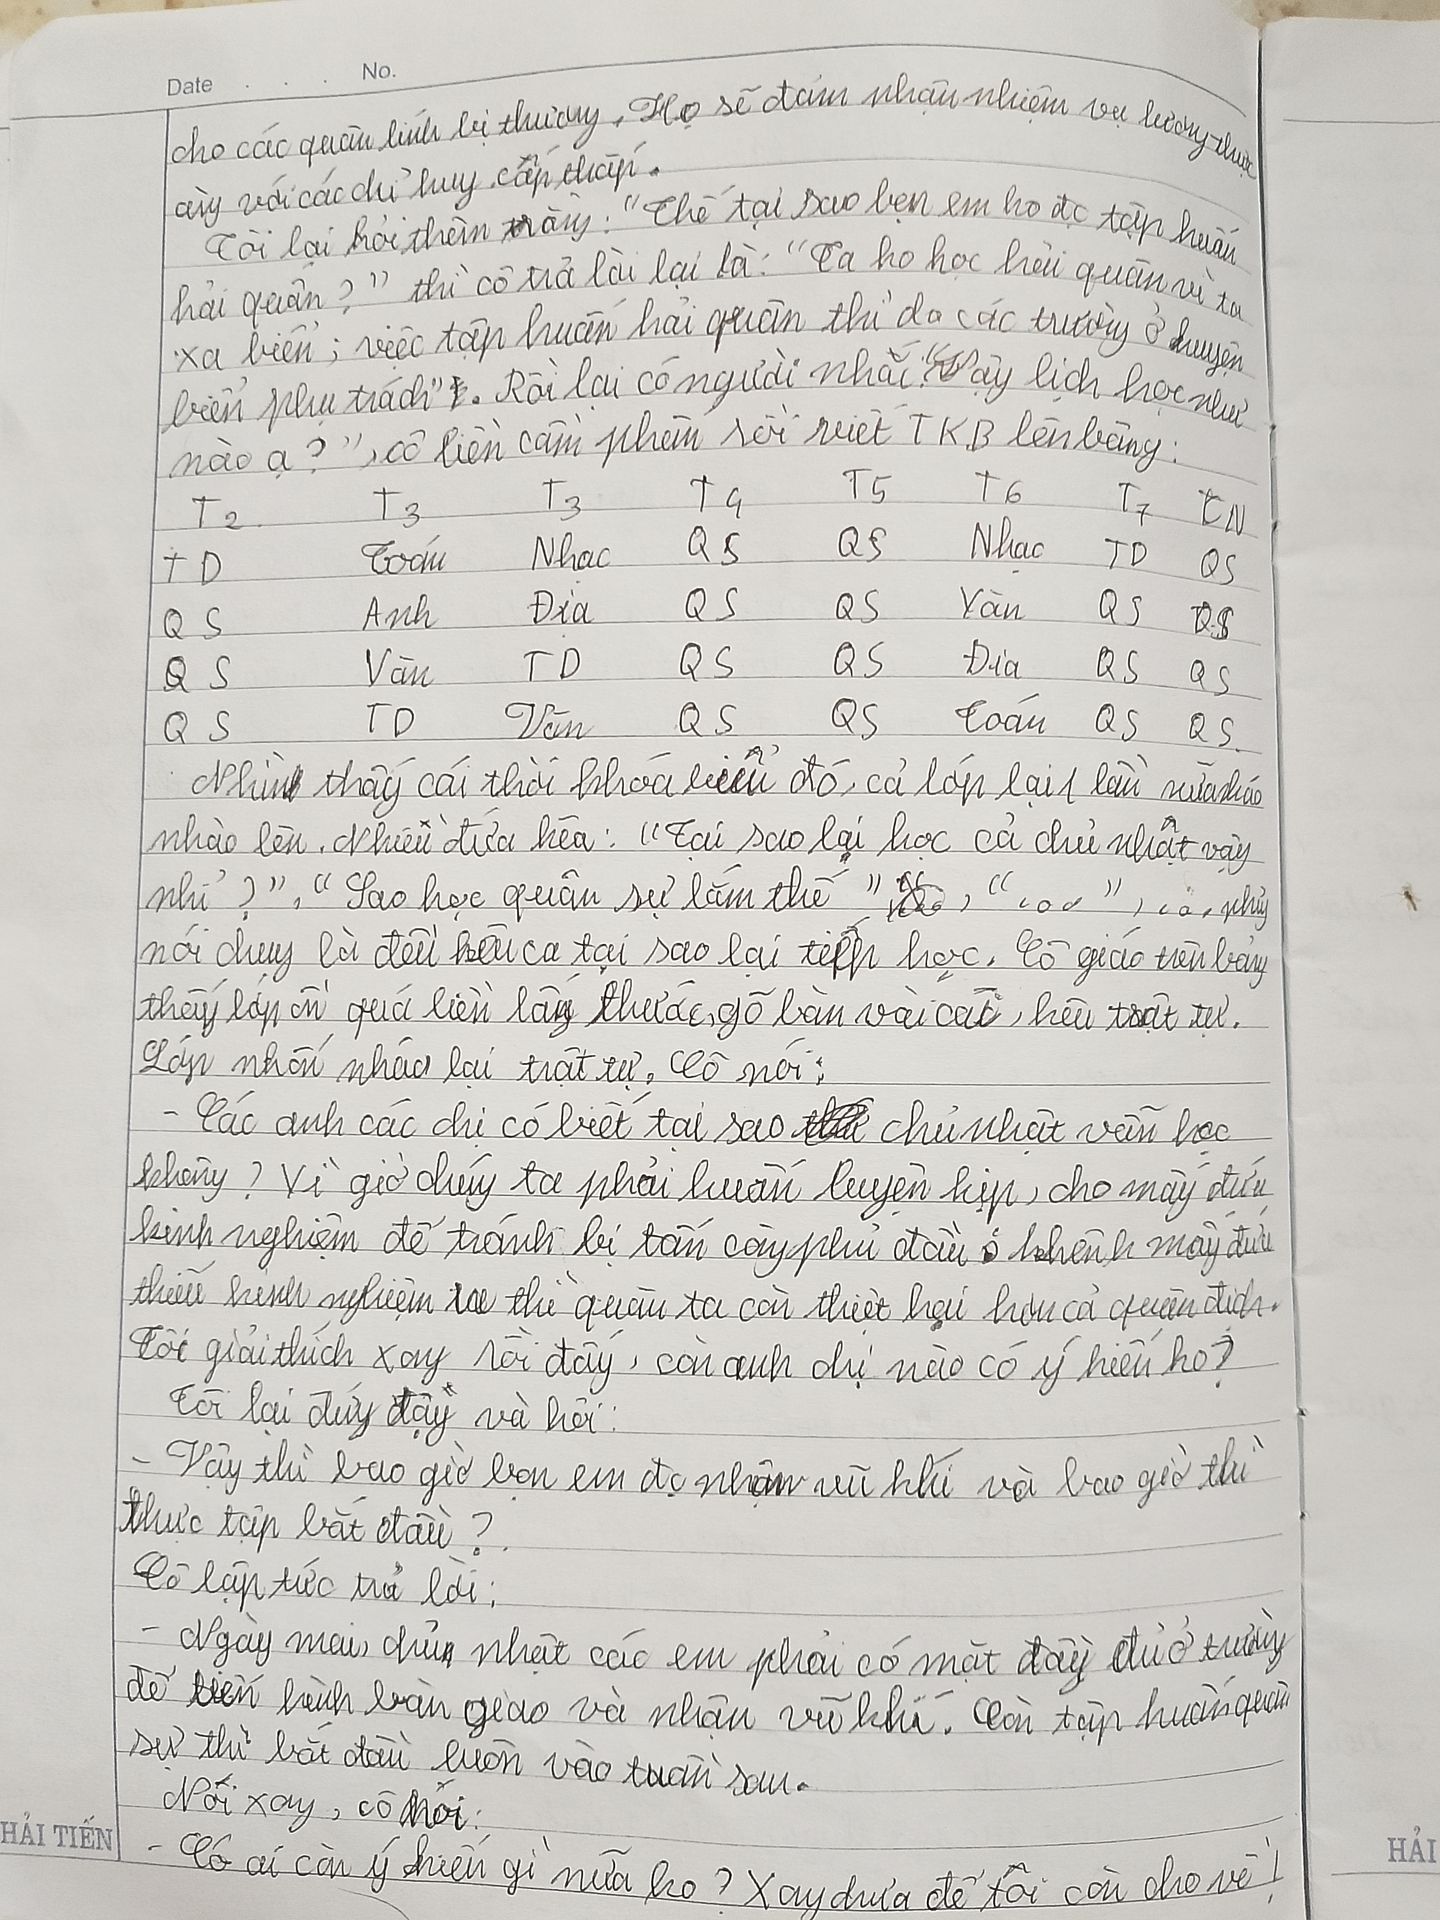 Date . . . No.
cho các quân lính bị thương. Họ sẽ đảm nhận nhiệm vụ lương thực
cùng với các chỉ huy cấp thấp.
Tôi lại hỏi thêm rằng: "Thế tại sao bọn em ko đc tập huấn
hải quân?" thì cô trả lời lại là: "Ta ko học hải quân vì ta
xa biển; việc tập huấn hải quân thì do các trường ở huyện
biển phụ trách". Rồi lại có người nhắc: "Vậy lịch học như
nào ạ?", cô liền cầm phấn rồi viết TKB lên bảng:
T2 T3 T3 T4 T5 T6 T7 CN
TD Toán Nhạc QS QS Nhạc TD QS
QS Anh Địa QS QS Văn QS QS
QS Văn TD QS QS Địa QS QS
QS TD Văn QS QS Toán QS QS.
Nhìn thấy cái thời khóa biểu đó, cả lớp lại 1 lần nữa nháo
nhào lên. Nhiều đứa kêu: "Tại sao lại học cả chủ nhật vậy
nhỉ?", "Sao học quân sự lắm thế", "...", ...
nói chung là đều kêu ca tại sao lại tiếp học. Cô giáo trên bảng
thấy lớp ồn quá liền lấy thước, gõ bàn vài cái, kêu trật tự.
Lớp nhốn nháo lại trật tự. Cô nói:
- Các anh các chị có biết tại sao chủ nhật vẫn học
không? Vì giờ chúng ta phải huấn luyện kịp, cho mấy đứa
kinh nghiệm để tránh bị tấn công phủ đầu mấy đứa
thiếu kinh nghiệm thì quân ta còn thiệt hại hơn cả quân địch.
Tôi giải thích xong rồi đấy, còn anh chị nào có ý kiến ko?
Tôi lại đứng dậy và hỏi:
- Vậy thì bao giờ bọn em đc nhận vũ khí và bao giờ thì
thực tập bắt đầu?
Cô lập tức trả lời:
- Ngày mai, chủ nhật các em phải có mặt đầy đủ ở trường
để tiến hành bàn giao và nhận vũ khí. Còn tập huấn quân
sự thì bắt đầu luôn vào tuần sau.
Nói xong, cô hỏi:
- Có ai còn ý kiến gì nữa ko? Xong chưa để tôi còn cho về!
HẢI TIẾN
HẢI